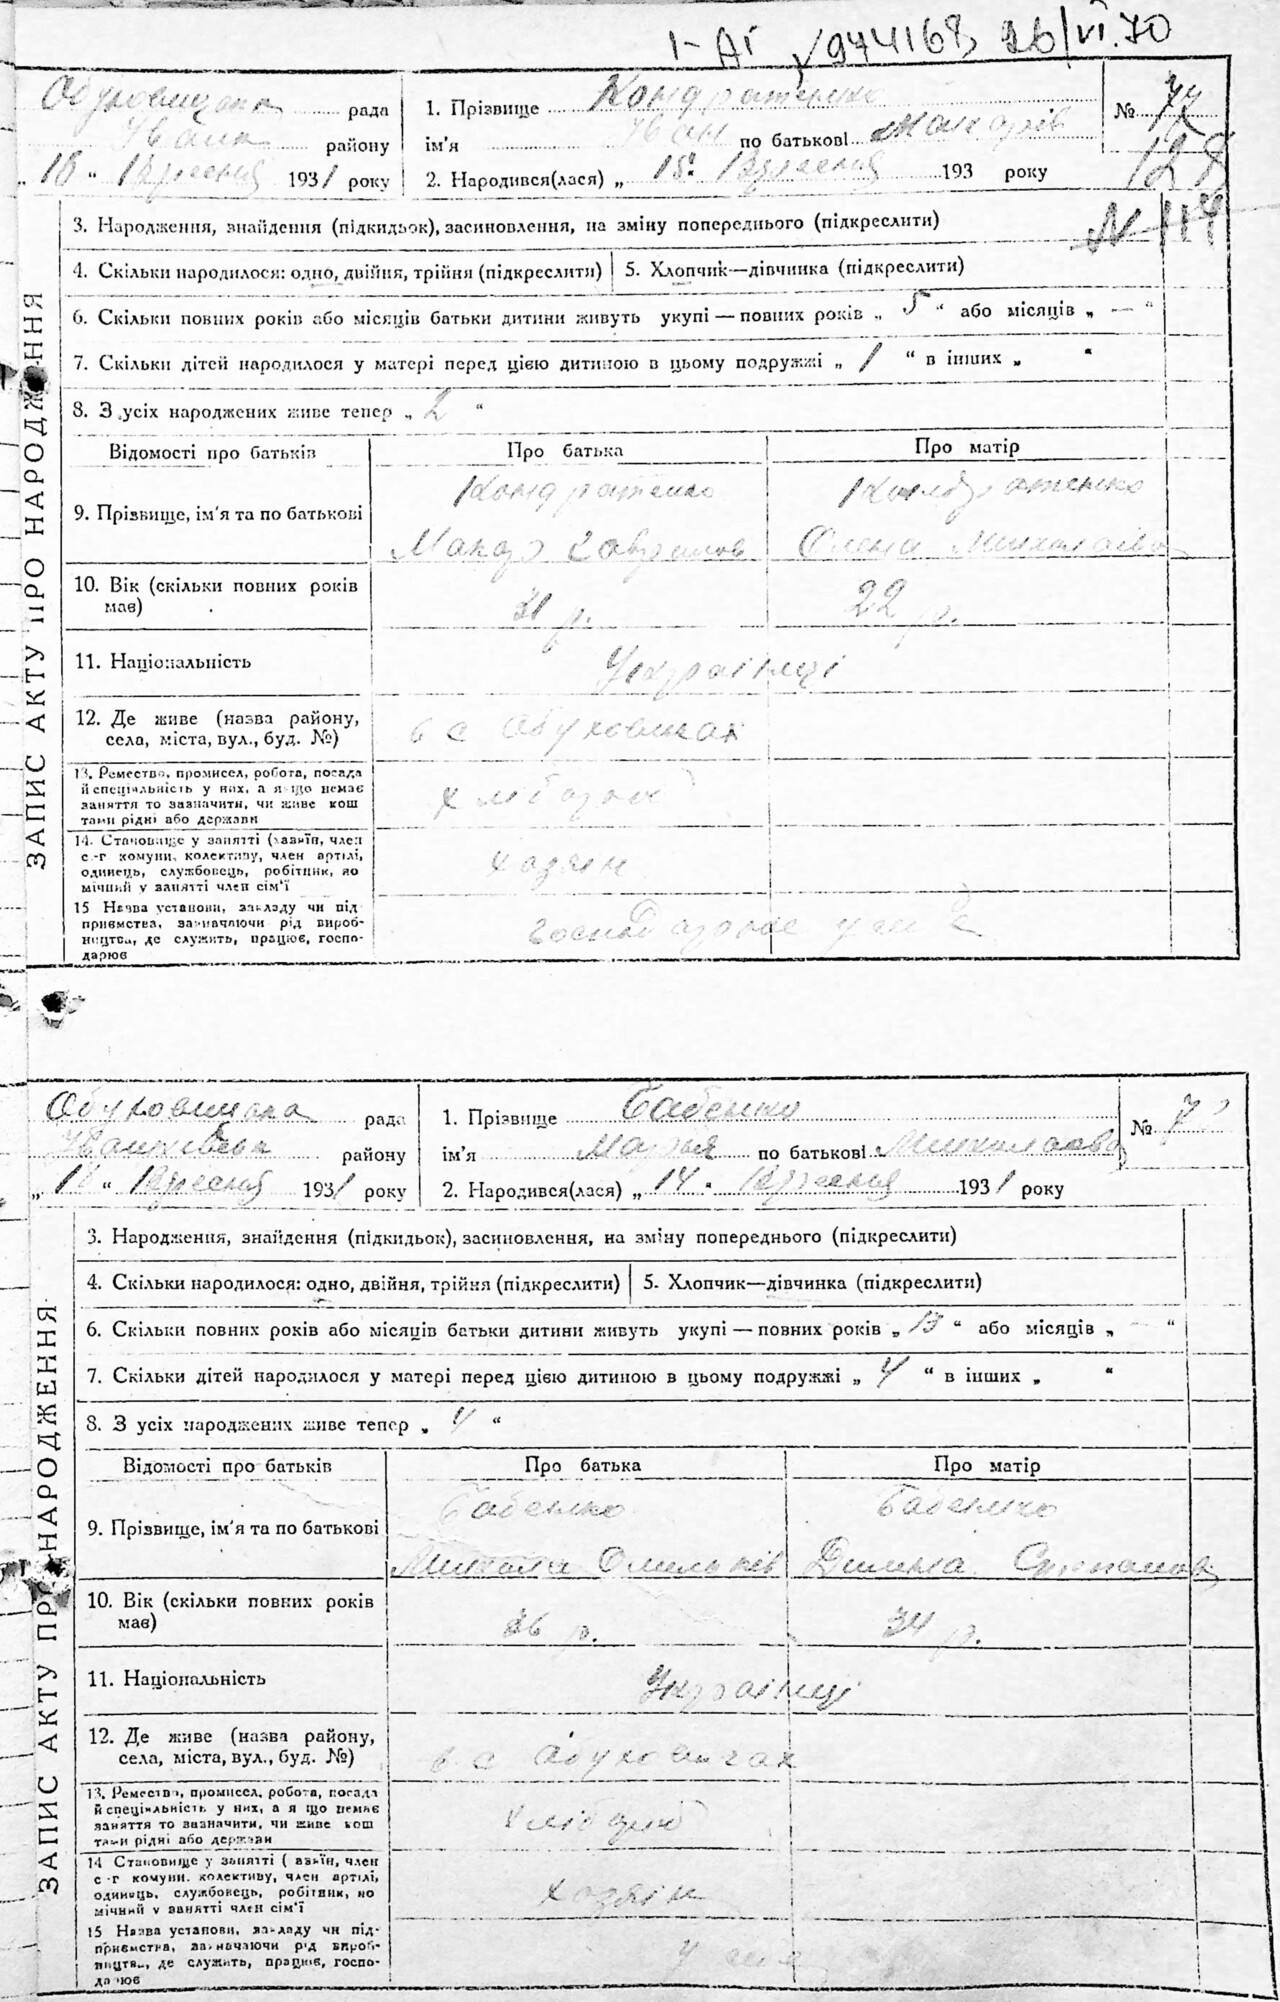 І-АГ №974168 26/VI.70
Обуховицька рада
Іванк району
„ 18 " Вересня 1931 року
1. Прізвище Кондратенко
ім'я Іван по батькові Макарів
2. Народився(лася) „ 15 " Вересня 193 року
№ 77
128
N 114
ЗАПИС АКТУ ПРО НАРОДЖЕННЯ
3. Народження, знайдення (підкидьок), засиновлення, на зміну попереднього (підкреслити)
4. Скільки народилося: одно, двійня, трійня (підкреслити)
5. Хлопчик—дівчинка (підкреслити)
6. Скільки повних років або місяців батьки дитини живуть укупі — повних років „ 5 " або місяців „ — "
7. Скільки дітей народилося у матері перед цією дитиною в цьому подружжі „ 1 " в інших „ "
8. З усіх народжених живе тепер „ 2 "
Відомості про батьків
Про батька
Про матір
9. Прізвище, ім'я та по батькові
Кондратенко
Макар Гаврилов
Кондратенко
Олена Миколаєва
10. Вік (скільки повних років має)
31 р.
22 р.
11. Національність
Українці
12. Де живе (назва району,
села, міста, вул., буд. №)
в с Обуховичах
13. Ремество, промисел, робота, посада
й спеціяльність у них, а якщо немає
заняття то зазначити, чи живе кош
тами рідні або держави
хлібороб
14. Становище у занятті (хазяїн, член
с-г комуни, колективу, член артілі,
одинець, службовець, робітник, по
мічний у занятті член сім'ї
хозяїн
15 Назва установи, закладу чи під
приємства, зазначаючи рід вироб-
ництва, де служить, працює, госпо-
дарює
господарює у селі
Обуховицька рада
Іванківськ району
„ 18 " Вересня 1931 року
1. Прізвище Бабенко
ім'я Марья по батькові Миколаєва
2. Народився(лася) „ 14 " Вересня 1931 року
№ 7
ЗАПИС АКТУ ПРО НАРОДЖЕННЯ
3. Народження, знайдення (підкидьок), засиновлення, на зміну попереднього (підкреслити)
4. Скільки народилося: одно, двійня, трійня (підкреслити)
5. Хлопчик—дівчинка (підкреслити)
6. Скільки повних років або місяців батьки дитини живуть укупі — повних років „ 13 " або місяців „ — "
7. Скільки дітей народилося у матері перед цією дитиною в цьому подружжі „ 4 " в інших „ "
8. З усіх народжених живе тепер „ 4 "
Відомості про батьків
Про батька
Про матір
9. Прізвище, ім'я та по батькові
Бабенко
Микола Омельків
Бабенко
Степанов
10. Вік (скільки повних років
має)
36 р.
34 р.
11. Національність
Українці
12. Де живе (назва району,
села, міста, вул., буд. №)
в с Обуховичах
13. Ремество, промисел, робота, посада
й спеціяльність у них, а якщо немає
заняття то зазначити, чи живе кош
тами рідні або держави
хлібороб
14 Становище у занятті (хазяїн, член
с-г комуни, колективу, член артілі,
одинець, службовець, робітник, по
мічний у занятті член сім'ї
хозяїн
15 Назва установи, закладу чи під-
приємства, зазначаючи рід вироб-
ництва, де служить, працює, госпо-
дарює
у селі